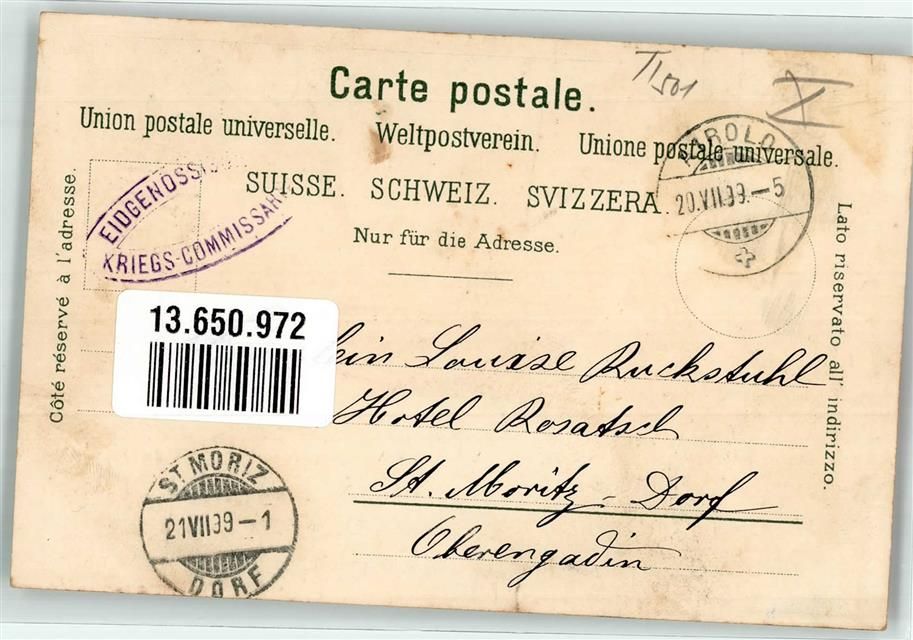 Carte postale.
Union postale universelle. Weltpostverein. Unione postale universale.
SUISSE. SCHWEIZ. SVIZZERA.
Nur für die Adresse.
Côté réservé à l'adresse.
Lato riservato all' indirizzo.
KRIEGS-COMMISSARI
AIROLO
20.VII.99.-5
13.650.972
Louise Ruckstuhl
Hotel Rosatsch
St. Moritz-Dorf
Oberengadin
ST. MORIZ
21VII99-1
DORF